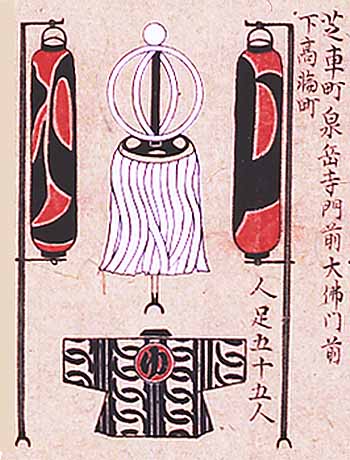 芝車町泉岳寺門前大佛門前
下高輪町
人足五十五人
ゆ